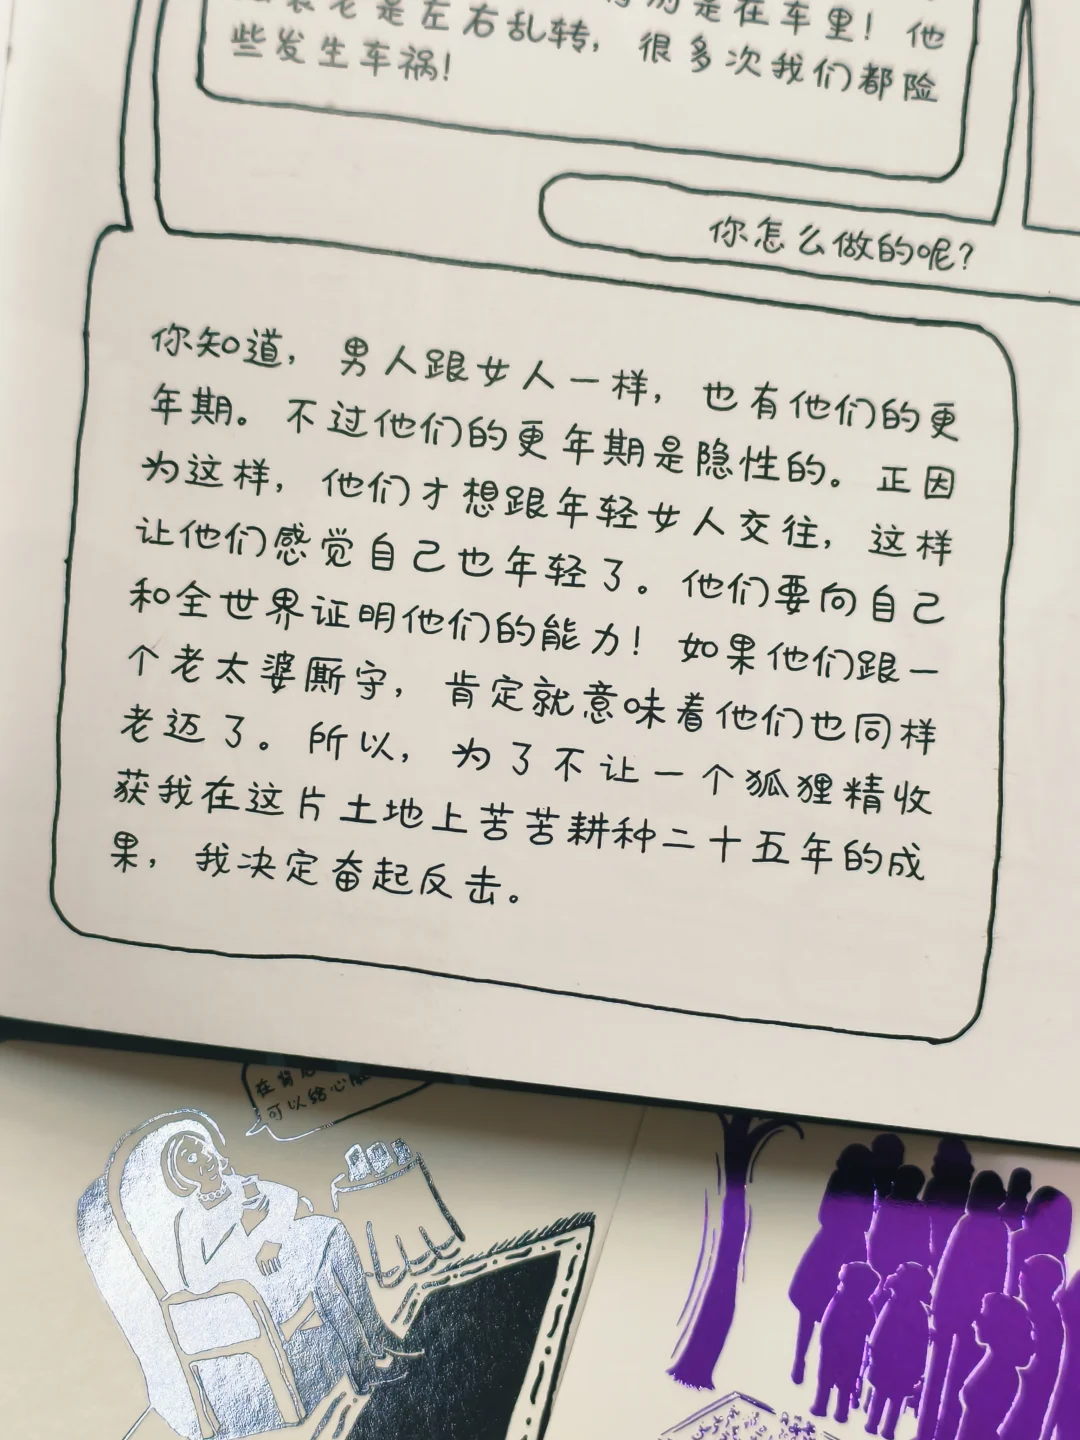 是左右乱转，很多次我们都险
些发生车祸！
你怎么做的呢？
你知道，男人跟女人一样，也有他们的更
年期。不过他们的更年期是隐性的。正因
为这样，他们才想跟年轻女人交往，这样
让他们感觉自己也年轻了。他们要向自己
和全世界证明他们的能力！如果他们跟一
个老太婆厮守，肯定就意味着他们也同样
老迈了。所以，为了不让一个狐狸精收
获我在这片土地上苦苦耕种二十五年的成
果，我决定奋起反击。
在背后
可以给心